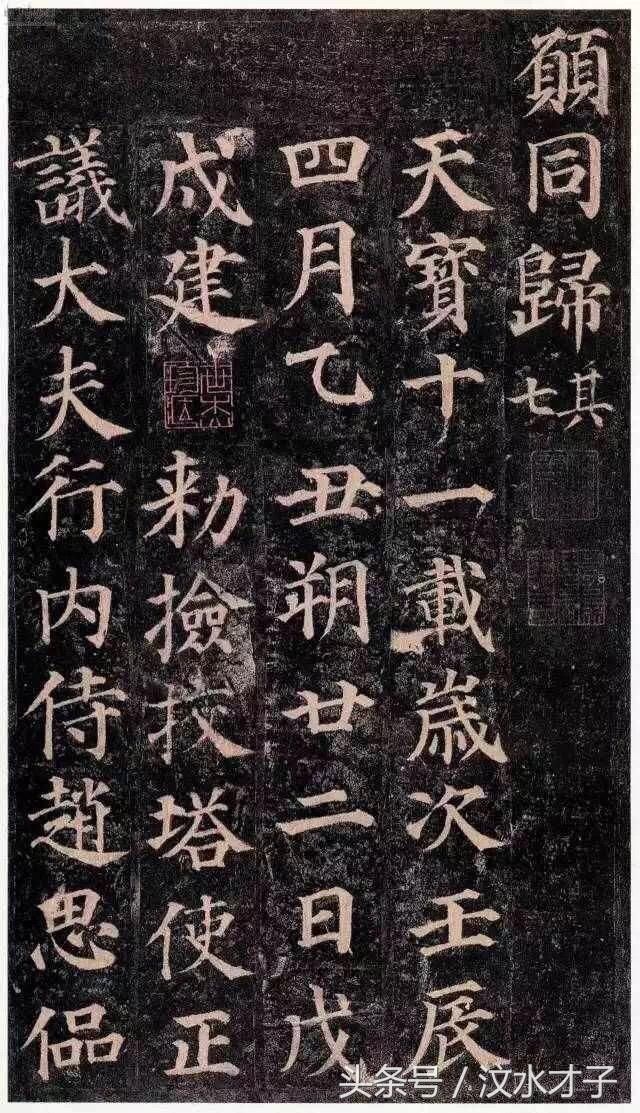 願同歸其七
天寶十一載歲次壬辰
四月乙丑朔廿二日戊
戌建勅撿挍塔使正
議大夫行内侍趙思偘
头条号 / 汶水才子